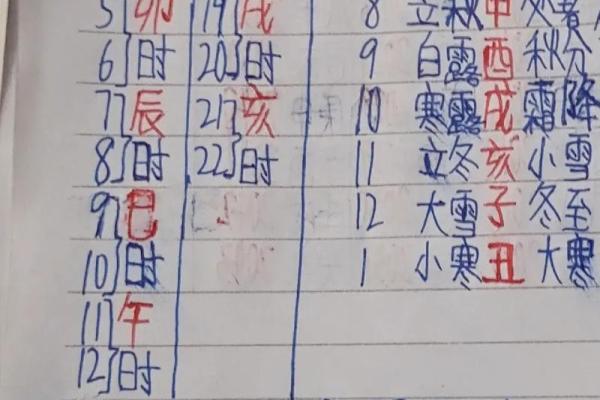 5 卯 19 戌 8 立秋 申 处暑
6 时 20 时 9 白露 酉 秋分
7 辰 21 亥 10 寒露 戌 霜降
8 时 22 时 11 立冬 亥 小雪
9 巳 12 大雪 子 冬至
10 时 1 小寒 丑 大寒
11 午
12 时